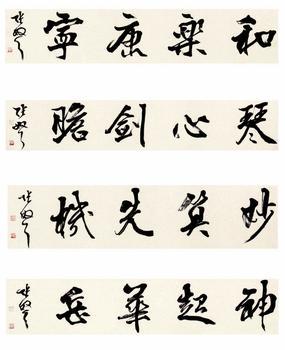 和樂康寧
琴心劍膽
妙算先機
神超華岳